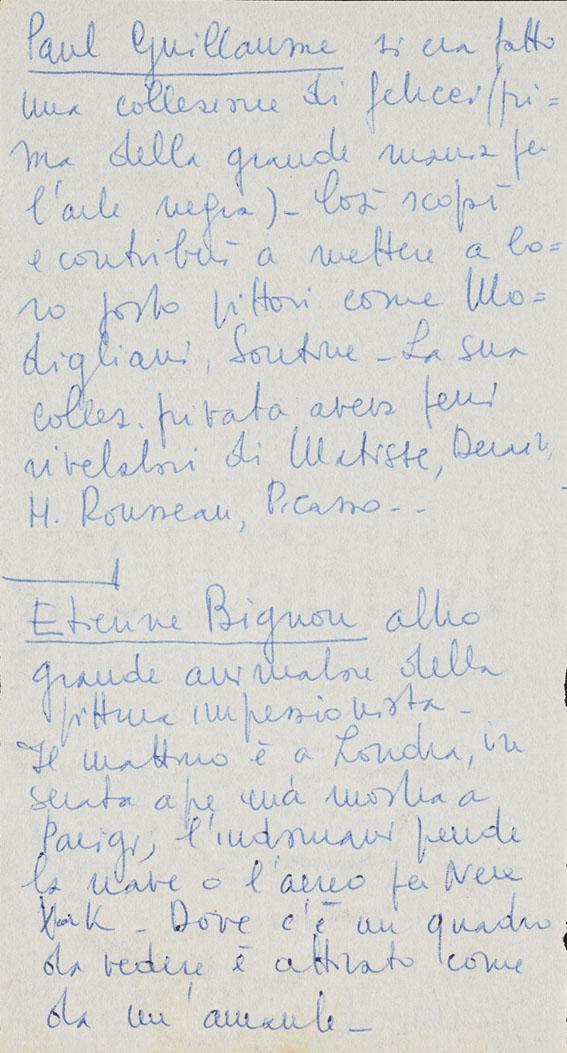 Paul Guillaume si era fatto
una collezione di felicci (pri=
ma della grande mania per
l'arte negra) - Così scoprì
e contribuì a mettere a lo=
ro posto pittori come Mo=
digliani, Soutine - La sua
collez. privata aveva pezzi
rivelatori di Matisse, Derain,
H. Rousseau, Picasso - -
Etienne Bignou altro
grande animatore della
pittura impressionista -
Il mattino è a Londra, in
serata apre una mostra a
Parigi, l'indomani prende
la nave o l'aereo per New
York - Dove c'è un quadro
da vedere è attirato come
da un'amante -